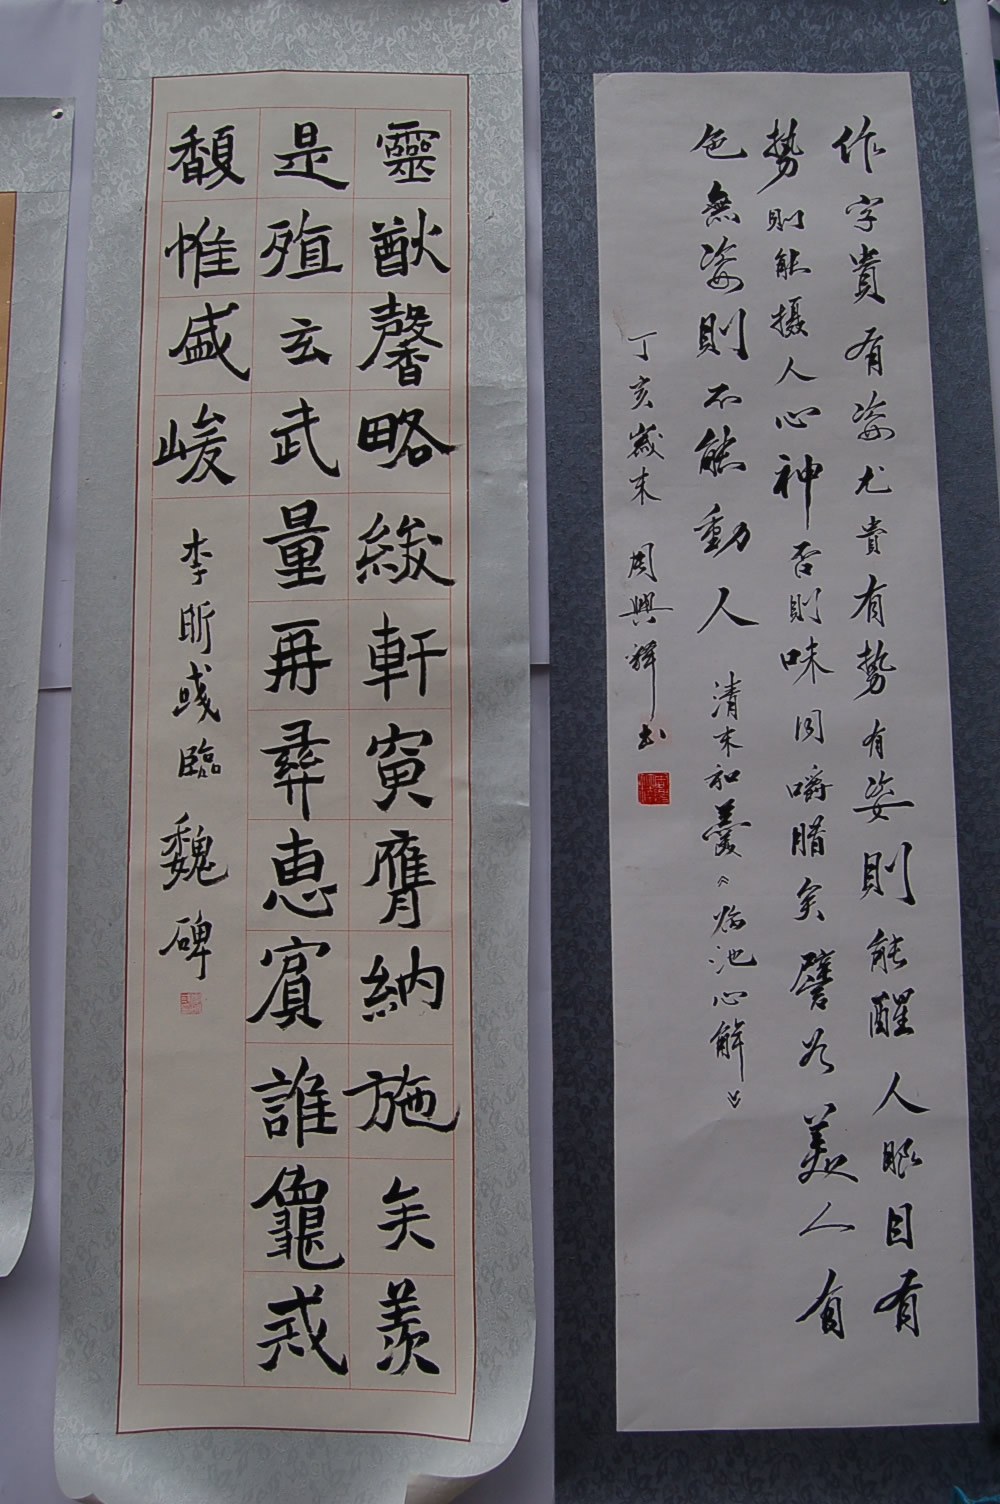 作字貴有姿尤貴有勢有姿則能醒人眼目有
勢則能摄人心神否則味同嚼腊矣譬如美人有
色無姿則不能動人 清末和羹《临池心解》
丁亥歲末 周興輝书
靈猷馨略軒寅膺納施矣羨
是殖玄武量再彝惠賓誰龕戎
馥惟盛峻 李昕彧臨魏碑